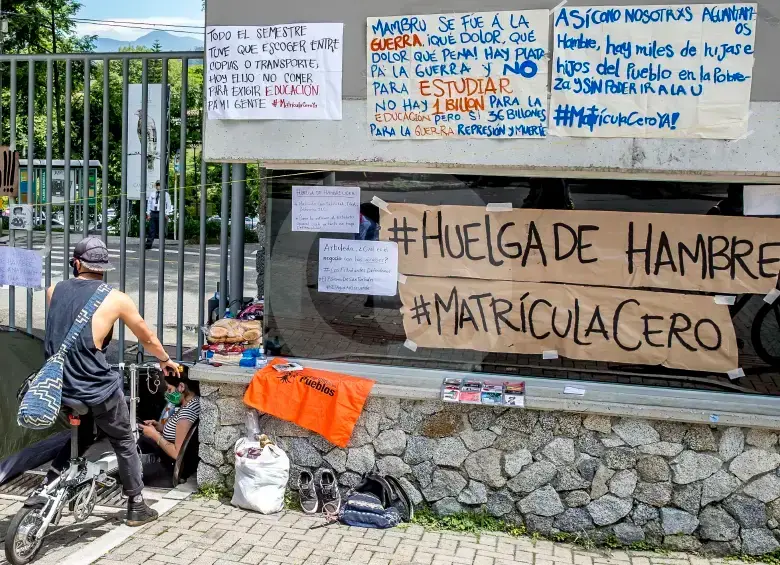 TODO EL SEMESTRE
TUVE QUE ESCOGER ENTRE
COPIAS O TRANSPORTE,
HOY ELIJO NO COMER
PARA EXIGIR EDUCACIÓN
PA MI GENTE #MatrículaCeroYa
MAMBRU SE FUÉ Á LA
GUERRA, ¡QUÉ DOLOR, QUÉ
DOLOR QUE PENA! HAY PLATA
PA LA GUERRA Y NO
PARA ESTUDIAR
NO HAY 1 BILLON PARA LA
EDUCACIÓN PERO SI 36 BILLONES
PARA LA GUERRA REPRESIÓN Y MUERTE
ASÍ COMO NOSOTRXS AGUANTAMOS
Hambre, hay miles de hijas e
hijos del Pueblo en la Pobre-
za Y SIN PODER IR A LA U
#MatrículaCeroYA!
!!!
#HUELGA DE HAMBRE
#MATRÍCULA CERO
Pueblos